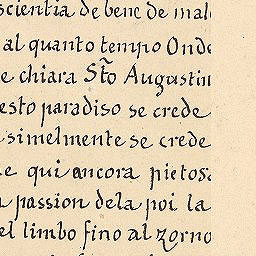 scientia de bene de mal
al quanto tempo Onde
e chiara Sto Augustin
esto paradiso se crede
simelmente se crede
e qui ancora pietosa
passion dela poi la
el limbo fino al zorno